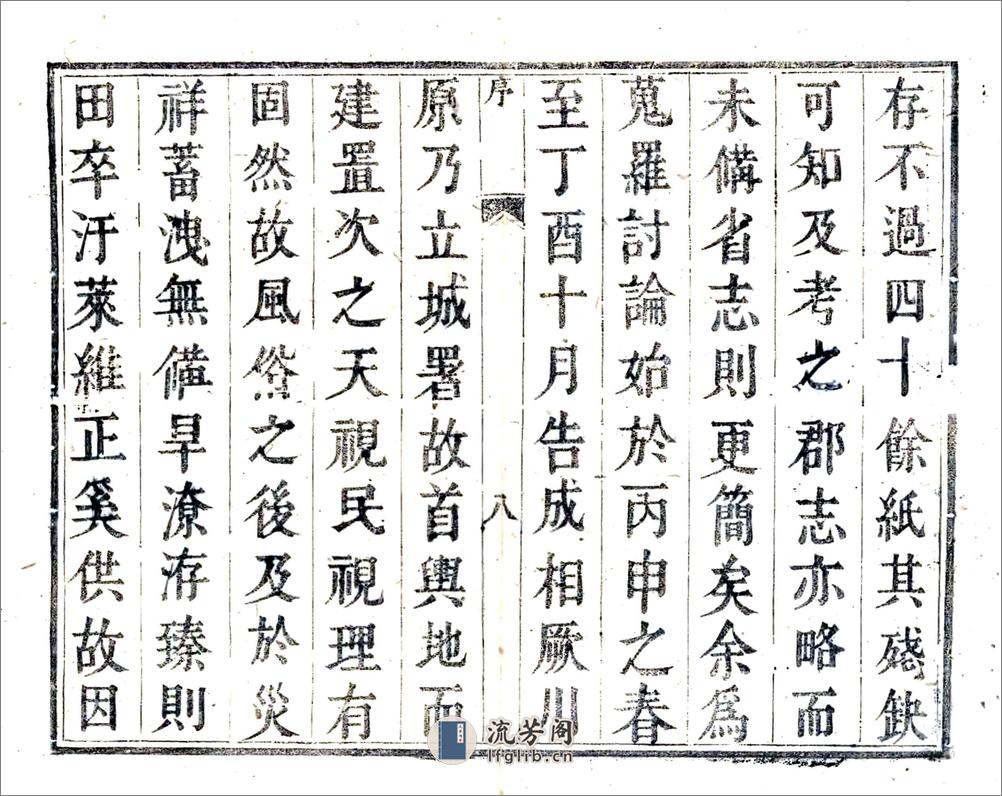 存不過四十餘紙其殘缺
可知及考之郡志亦略而
未備省志則更簡矣余爲
蒐羅討論始於丙申之春
至丁酉十月告成相厥川
序 八
原乃立城署故首輿地而
建置次之天視民視理有
固然故風俗之後及於災
祥蓄洩無備旱潦洊臻則
田卒汙萊維正奚供故因
流芳阁
lfglib.cn